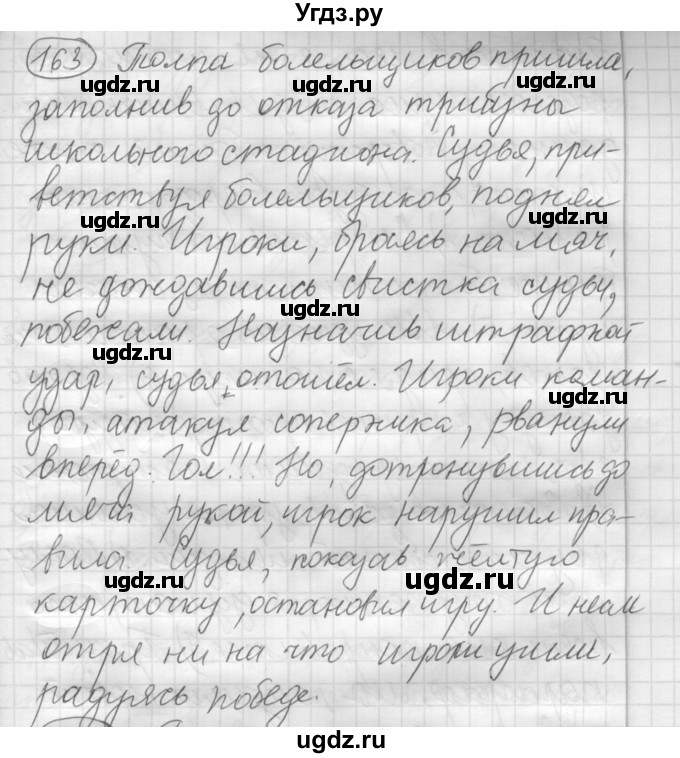 Угдз.ру
163 Толпа болельщиков пришла,
ugdz.ru ugdz.ru
заполнив до отказа трибуны
школьного стадиона. Судья, при-
ugdz.ru
ветствуя болельщиков, поднял
ugdz.ru ugdz.ru
руки. Игроки, бросаясь на мяч,
не дождавшись свистка судьи,
ugdz.ru
побежали. Назначив штрафной
ugdz.ru
удар, судья отошёл. Игроки коман-
ugdz.ru
ды, атакуя соперника, рванули
вперёд. Гол!!! Но, дотронувшись до
мяча рукой, игрок нарушил пра-
вила. Судья, показав жёлтую
ugdz.ru ugdz.ru
карточку, остановил игру. И несм
отря ни на что игроки ушли,
ugdz.ru
радуясь победе.
ugdz.ru